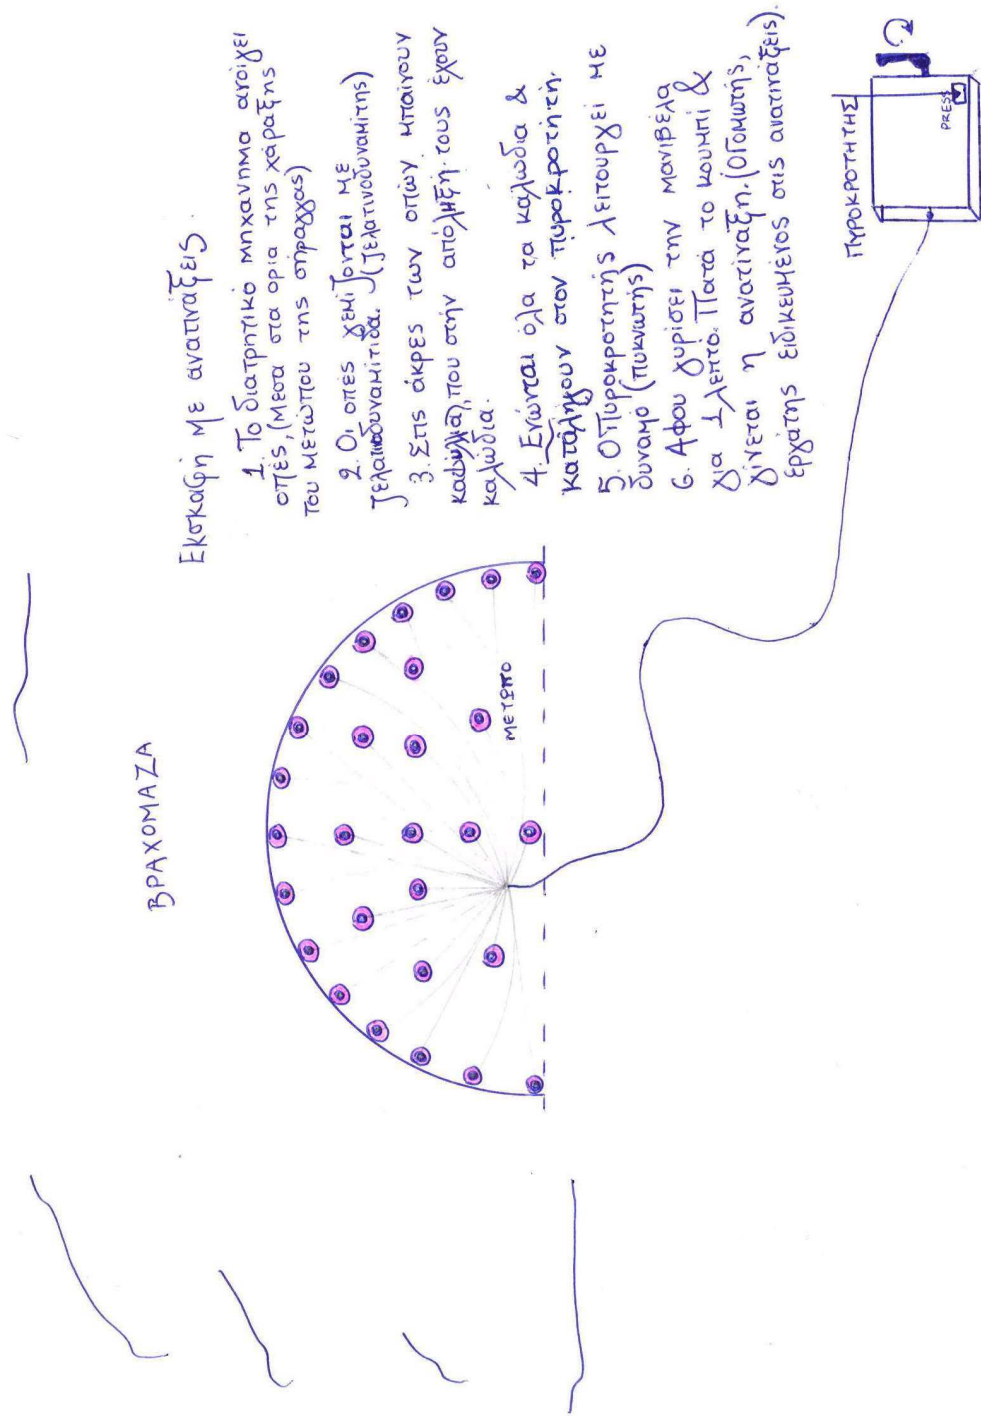 Εκσκαφή με ανατινάξεις.
1. Το διατρητικό μηχανημα ανοίγει
οπές, (μεσα στα ορια της χάραξης
του μετώπου της σήραγγας)
2. Οι οπές γεμίζονται με
ζελατοδυναμίτιδα. (ζελατινοδυναμίτης)
3. Στις άκρες των οπών μπαίνουν
καψύλια, που στην απόληξή τους έχουν
καλώδια.
4. Ενώνται όλα τα καλώδια &
καταλήγουν στον πυροκροτητή.
5. Ο πυροκροτητής λειτουργεί με
δυναμό (πυκνωτής)
6. Αφου γυρίσει την μανιβέλα
για 1 λεπτό. Πατά το κουμπί &
γίνεται η ανατίναξη. (Ο γομωτής,
εργάτης ειδικευμένος στις ανατινάξεις).
ΒΡΑΧΟΜΑΖΑ
ΜΕΤΩΠΟ
ΠΥΡΟΚΡΟΤΗΤΗΣ
PRESS